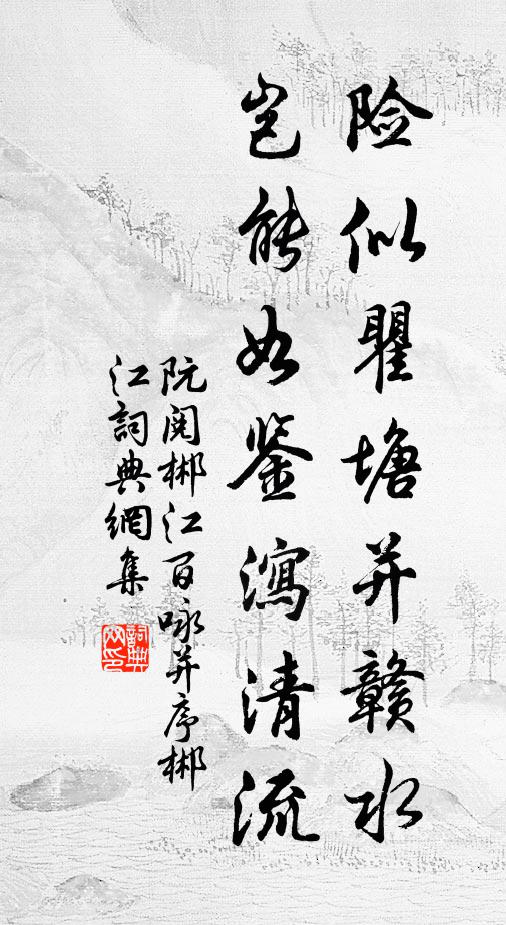 险似瞿塘并赣水
岂能如鉴瀉清流
阮阅郴江百咏并序郴
江詞典網集
詞典
网印